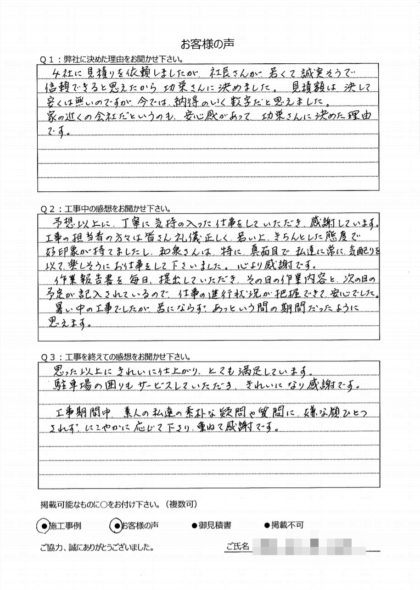 お客様の声
Q1：弊社に決めた理由をお聞かせ下さい。
4社に見積りを依頼しましたが、社長さんが若くて誠実そうで
信頼できると思えたから功栄さんに決めました。見積額は決して
安くは無いのですが、今では、納得のいく数字だと思えました。
家の近くの会社だというのも、安心感があって功栄さんに決めた理由
です。
Q2：工事中の感想をお聞かせ下さい。
予想以上に、丁寧に気持の入った仕事をしていただき、感謝しています。
工事の担当者の方々は皆さん礼儀正しく、若い上、きちんとした態度で
好印象が持てましたし、和泉さんは、特に、真面目で私達に常に気配りを
以て楽しそうにお仕事をして下さいました。心より感謝です。
作業報告書を毎日、提出していただき、その日の作業内容と、次の日の
予定が記入されているので、仕事の進行状況が把握できて、安心でした。
暑い中の工事でしたが、苦にならず、あっという間の期間だったように
思えます。
Q3：工事を終えての感想をお聞かせ下さい。
思った以上にきれいに仕上がり、とても満足しています。
駐車場の囲りもサービスしていただき、きれいになり感謝です。
工事期間中、素人の私達の素朴な疑問や質問に、嫌な顔ひとつ
されず、にこやかに応じて下さり、重ねて感謝です。
掲載可能なものに○をお付け下さい。（複数可）
●施工事例 ●お客様の声 ●御見積書 ●掲載不可
ご協力、誠にありがとうございました。 ご氏名